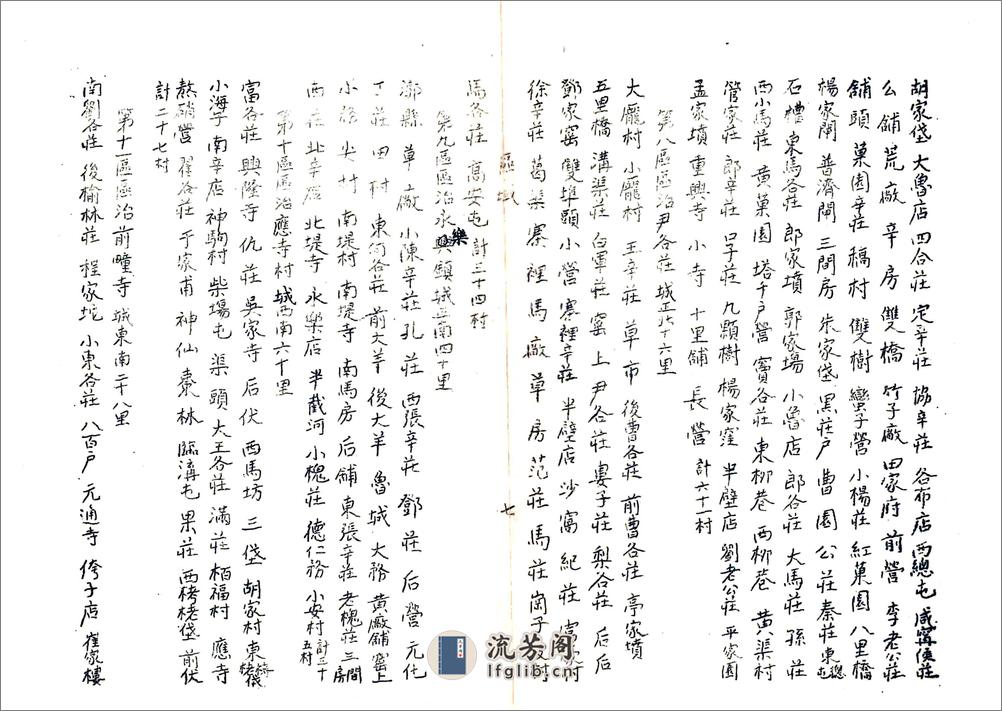 胡家垡 大魯店 四合莊 定辛莊 協辛莊 各布店 西總屯 咸寧侯莊
么舖 荒廠 辛房 雙橋 竹子廠 田家府 前營 李老公莊
舖頭 菓園 辛莊 稿村 雙樹 蠻子營 小楊莊 紅菓園 八里橋
楊家閘 普濟閘 三間房 朱家垡 黑莊戶 曹園 公莊 秦莊 東總屯
石槽 東馬各莊 郎家墳 郭家場 小魯店 郎各莊 大馬莊 孫莊
西小馬莊 黃菓園 塔千戶營 竇各莊 東柳巷 西柳巷 黃渠村
管家莊 郎辛莊 口子莊 九顆樹 楊家窪 半壁店 劉老公莊 平家園
孟家墳 重興寺 小寺 十里舖 長營 計六十一村
第八區區治尹各莊 城正北十六里
大龐村 小龐村 王辛莊 草市 後曹各莊 前曹各莊 亭家墳
五里橋 溝渠莊 白軍莊 窰上 尹各莊 婁子莊 梨各莊 后后
鄧家窰 雙埠頭 小營 寨裡辛莊 半壁店 沙窩 紀莊 富豪村
徐辛莊 葛渠 寨裡 馬廠 草房 范莊 馬莊 崗子 村
區域
七
馬各莊 高安屯 計三十四村
第九區區治永樂鎮城正南四十里
漷縣 草廠 小陳辛莊 孔莊 西張辛莊 鄧莊 后營 元化
丁莊 田村 東何各莊 前大羊 後大羊 魯城 大務 黃廠舖 窰上
小務 尖村 南堤村 南堤寺 南馬房 后舖 東張辛莊 老槐莊 三間房
西莊 北辛店 北堤寺 永樂店 半截河 小槐莊 德仁務 小安村 計三十五村
第十區區治應寺村 城西南六十里
富各莊 興隆寺 仇莊 吳家寺 后伏 西馬坊 三垡 胡家村 東儀
小海子 南辛店 神駒村 柴場屯 渠頭 大王各莊 滿莊 栢福村 應寺
熬硝營 翟各莊 于家甫 神仙 棗林 臨溝屯 果莊 西栲栳垡 前伏
計二十七村
第十一區區治前疃寺 城東南二十八里
南劉各莊 後榆林莊 程家坨 小東各莊 八百戶 元通寺 侉子店 崔家樓
流芳阁
lfglib.cn